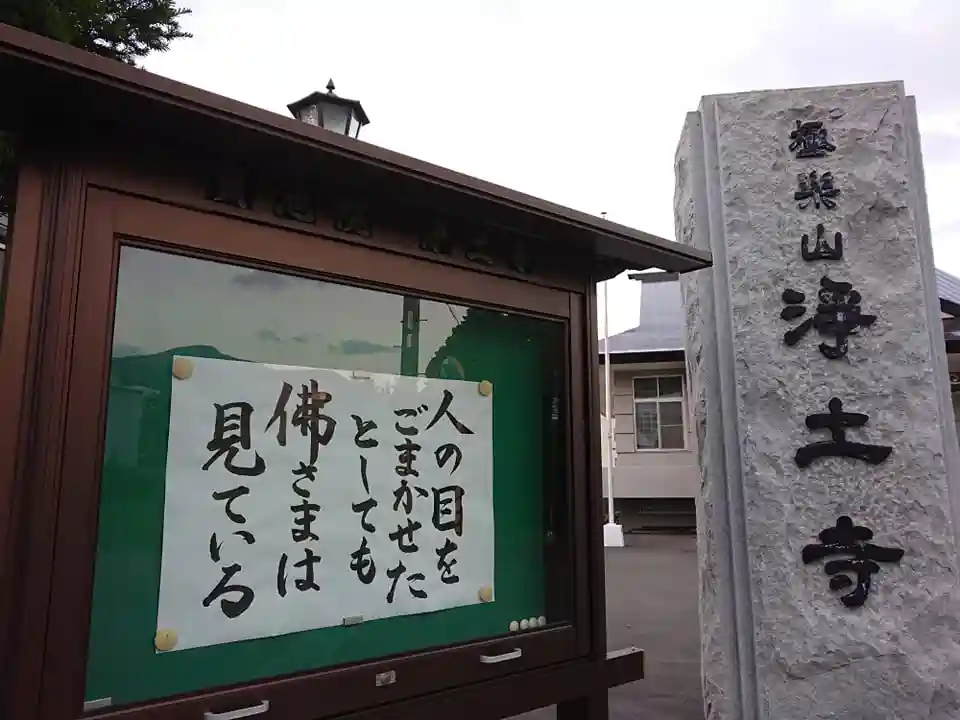 極楽山浄土寺
人の目を
ごまかせた
としても
佛さまは
見ている